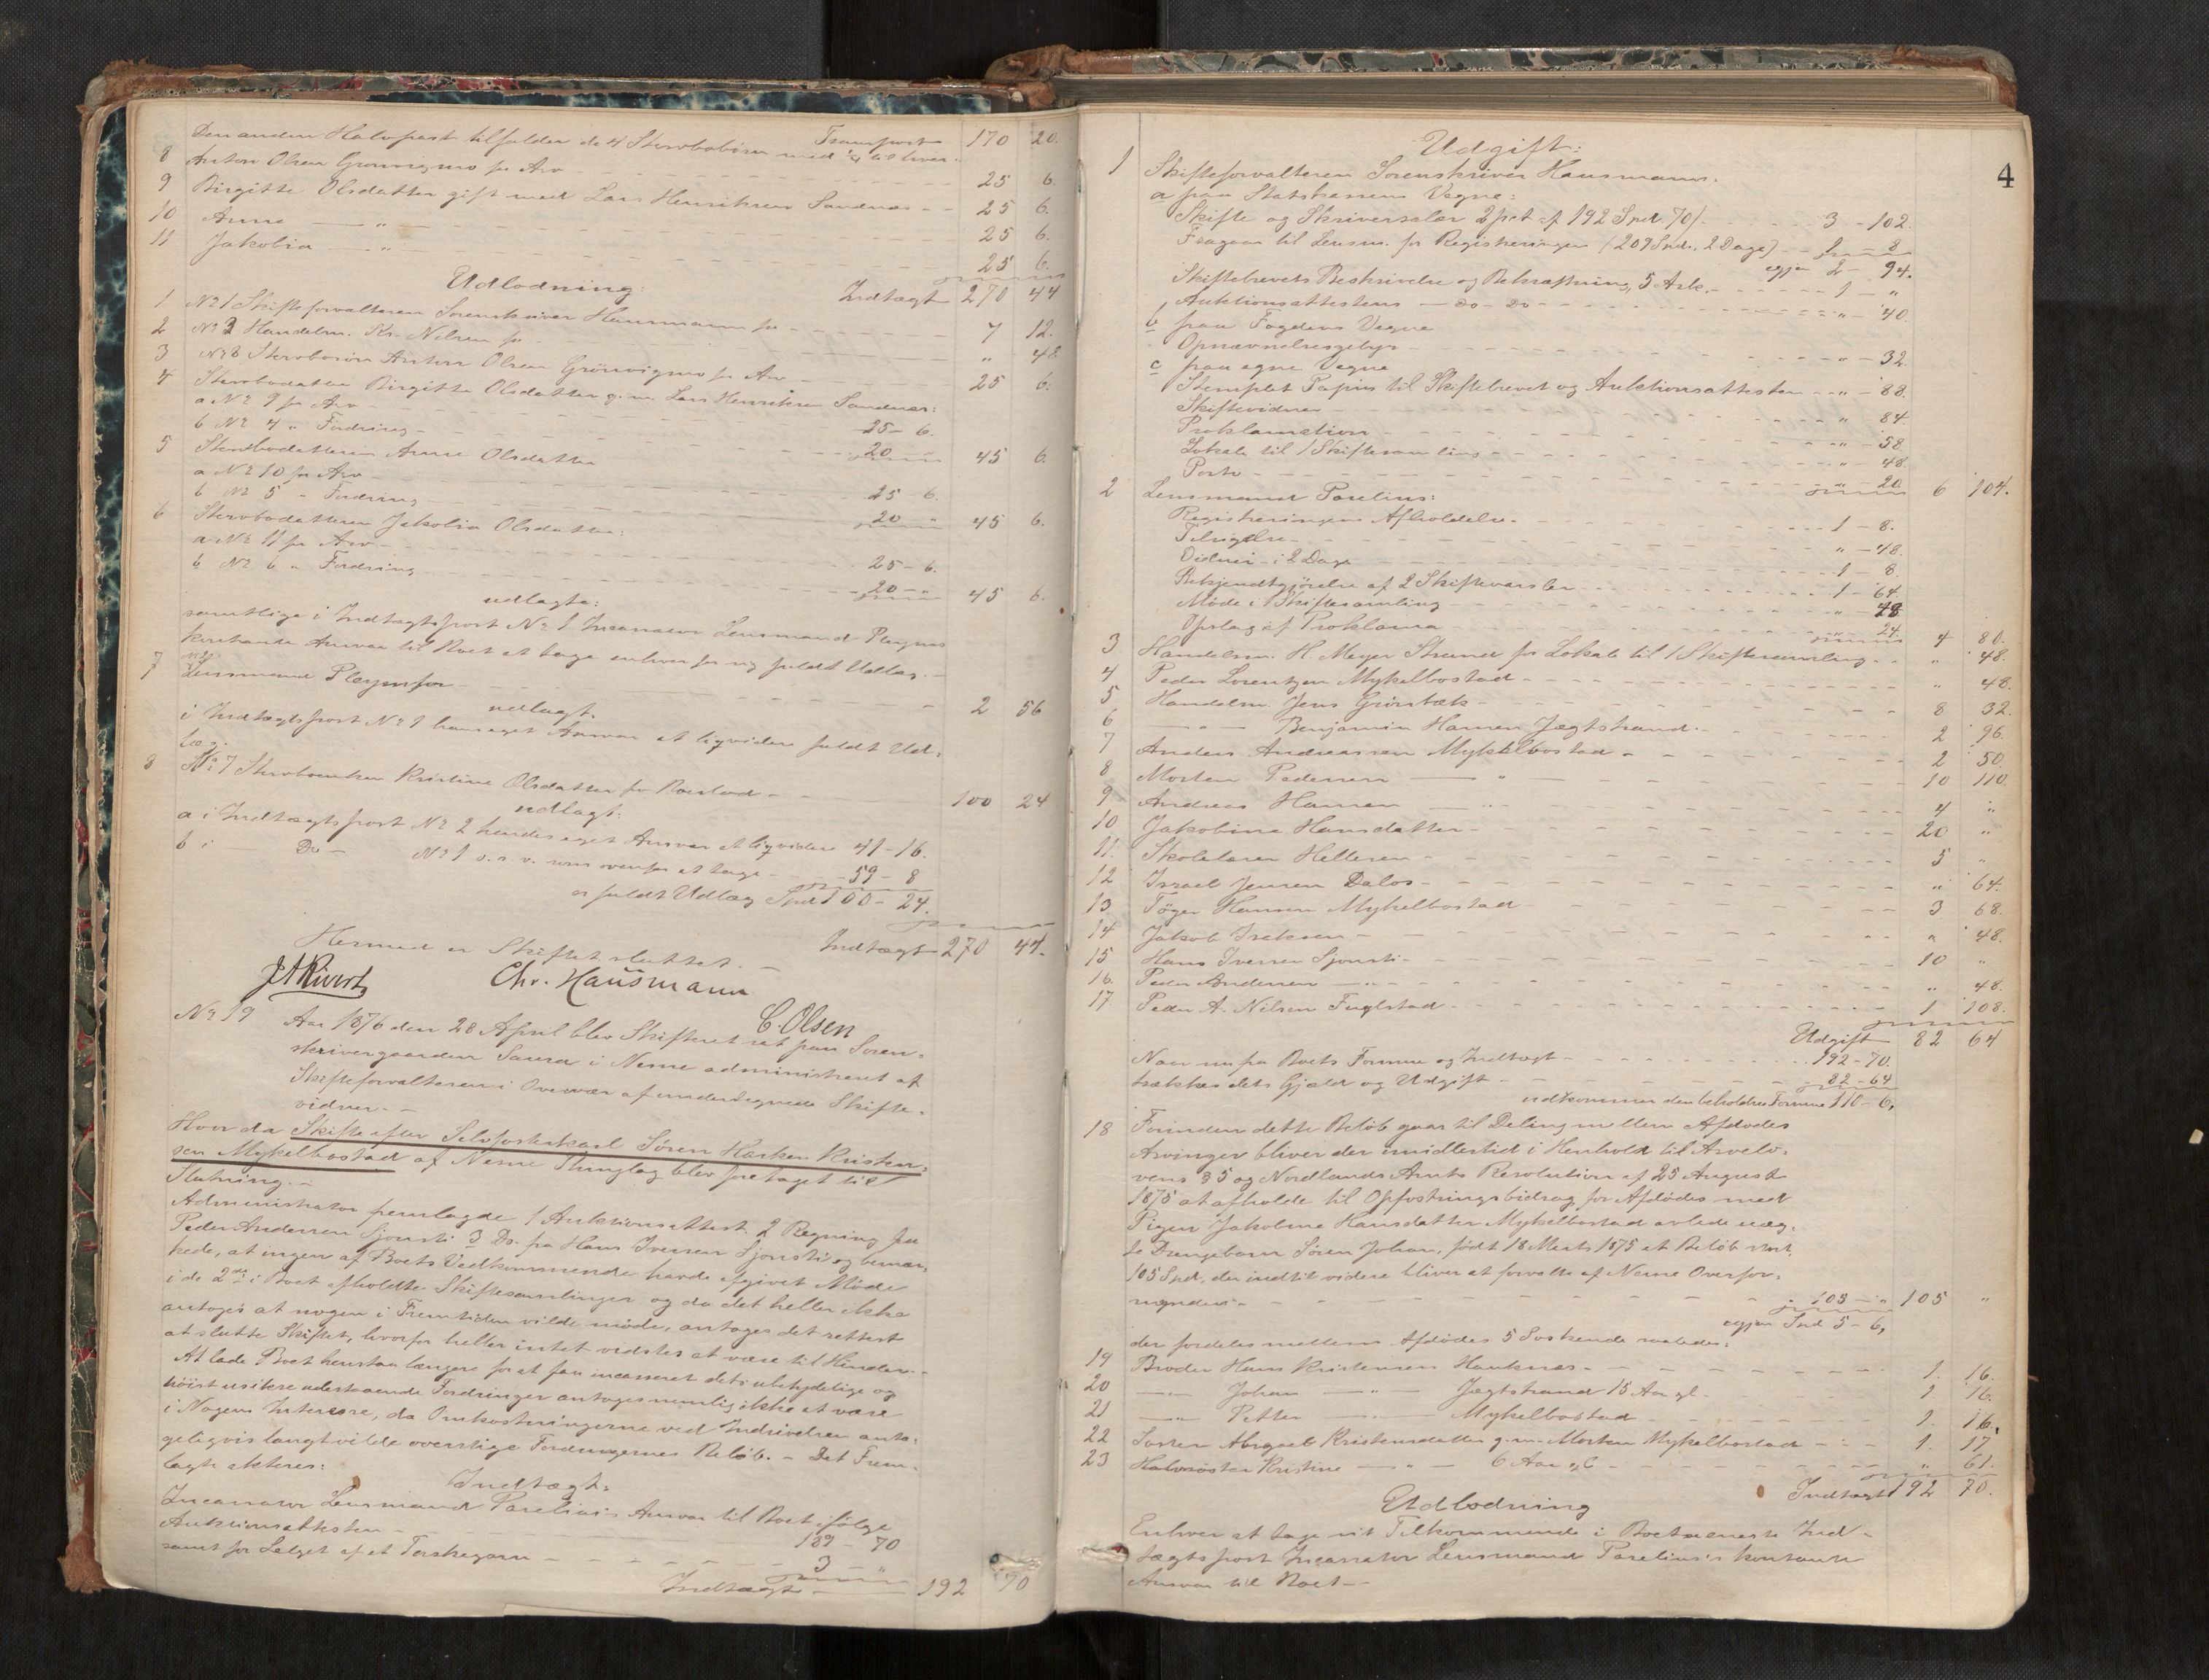 Transport 170 20.
Den anden Halvpart tilfalder de 4 Stervbobørn med ¼ til hver.
8 Anton Olsen Grønvigmo for Arv 25 6.
9 Birgitte Olsdatter gift med Lars Henriksen Sandnæs 25 6.
10 Anne — " — 25 6.
11 Jakobia — " — 25 6.
Indtægt 270 44
Udlodning:
1 No 1 Skifteforvalteren Sorenskriver Hansmann for 7 12.
2 No 2 Handelsm. Kr. Nilsen for " 48
3 No 8 Stervbosøn Anton Olsen Grönvigmo for Arv 25 6.
4 Stervbodatter Birgitte Olsdatter g.m. Lars Henriksen Sandnæs:
a No 9 for Arv 25 - 6.
b No 4 " Fordring 20 - " 45 6.
5 Stervbodatteren Anne Olsdatter
a No 10 for Arv 25 - 6.
b No 5 " Fordring 20 - " 45 6.
6 Stervbodatteren Jakobia Olsdatter:
a No 11 for Arv 25 - 6.
b No 6 " Fordring 20 - " 45 6.
udlagte:
samtlige i Indtægtspost No 1 Incassator Lensmand Pleyms
kontante Ansvar til Boet at tage enhver for sig fuldt Udlæg.
7 Lensmand Pleym for 2 56
udlagt:
i Indtægtspost No 1 hans eget Ansvar at liqvidere fuldt Ud-
læg.
8 No 7 Stervboenken Kristine Olsdatter for Boeslod 100 24
udlagt:
a i Indtægtspost No 2 hendes eget Ansvar at liqvidere 41 - 16.
b i — Do — No 1 s. s. v. som ovenfor at tage 59 - 8
er fuldt Udlæg Spd 100 - 24.
Indtægt 270 44.
Hermed er Skiftet sluttet.
Chr. Hansmann
C. Olsen
No 19 Aar 1876 den 28 April blev Skifteret sat paa Soren-
skrivergaarden Saura i Nesne administreret af
Skifteforvalteren i Overvær af undertegnede Skifte-
vidner.
Hvor da Skifte efter Selvfosterkarl Søren Kristen-
sen Mykelbostad af Nesne Thinglag blev foretaget til
Slutning.
Administrator fremlagde 1 Auktionsattest 2 Regning fra
Peder Andersen Sjonsti 3 Do. fra Hans Iversen Sjonsti og bemær-
kede, at ingen af Boets Vedkommende havde afgivet Møde
i de 2de i Boet afholdte Skiftesamlinger og da det heller ikke
antoges at nogen i Fremtiden vilde møde, antoges det rettest
at slutte Skiftet, hvorfor heller intet vidstes at være til Hinder.
At lade Boet henstaa længere for at faa incasseret dets ubetydelige og
høist usikre udestaaende Fordringer antoges nemlig ikke at være
i Nogens Interesse, da Omkostningerne ved Inddrivelsen anta-
geligvis langt vilde overstige Fordringernes Beløb. - Det Frem-
lagte akteres:
Indtægt:
Incassator Lensmand Parelius's Ansvar til Boet ifølge
Auktionsattesten 189 - 70
samt for Salget af et Torskegarn 3 - "
Indtægt 192 70
4
Udgift:
1 Skifteforvalteren Sorenskriver Hansmann.
a paa Statskassens Vegne:
Skifte og Skriversalær 2 pct af 192 Spd. 70 3 - 102.
Fragaar til Lensm. for Registreringen (209 Spd. 2 Dage) 1 - 8
igjen 2 - 94.
Skiftebrevets Beskrivelse og Bekræftning, 5 Ark. 1 - "
Auktionsattestens — do - do " - 40
b paa Fogdens Vegne
Opnævnelsesgebyr " - 32
c paa egne Vegne
Stemplet Papir til Skiftebrevet og Auktionsattesten " - 88.
Skiftevidner " 84
Proklamation " - 58
Lokale til 1 Skiftesamling " - 48.
Porto " - 20. 6 104.
2 Lensmand Parelius:
Registreringens Afholdelse 1 - 8.
Tilsigelse " - 48.
Vidner i 2 Dage 1 - 8.
Bekjendtgjørelse af 2 Skiftevarsler 1 - 64.
Møde i 1 Skiftesamling " 48
Opslag af Proklama 24. 4 80.
3 Handelsm. H. Meyer Strand for Lokale til 1 Skiftesamling " 48.
4 Peder Lorentzen Mykelbostad " 48.
5 Handelsm. Jens Grønbæk 8 32
6 — " — Benjamin Hansen Jægtstrand 2 96.
7 Anders Andreassen Mykelbostad 2 50.
8 Morten Pedersen — " — 10 110.
9 Andreas Hansen — " — 4 "
10 Jakobine Hansdatter 20 "
11. Skolelærer Hellesen 5 "
12 Israel Jensen Dalos " 64.
13 Töger Hansen Mykelbostad 3 68.
14 Jakob Isaksen " 48.
15 Hans Iversen Sjonsti 10 "
16. Peder Andersen — " — " 48.
17 Peder A. Nilsen Fuglstad 1 108.
Udgift 82 64
Naar nu fra Boets Formue og Indtægt 192 - 70.
trækkes dets Gjæld og Udgift 82 - 64
udkommer den beholdne Formue 110 - 6.
18 Forinden dette Beløb gaar til Deling mellem Afdødes
Arvinger bliver der imidlertid i Henhold til Arvelo-
vens § 5 og Nordlands Amts Resolution af 25 August
1875 at afholde til Opfostringsbidrag for Afdødes med
Pigen Jakobine Hansdatter Mykelbostad avlede uæg-
te Drengebarn Søren Johan, født 18 Marts 1875 et Beløb stort
105 Spd, der indtil videre bliver at forvalte af Nesne Overfor-
mynderi 105 - " 105 "
igjen Spd 5 - 6,
der fordeles mellem Afdødes 5 Søskende saaledes:
19 Broder Hans Kristensen Hauknæs 1. 16.
20 — " — Johan — " — Jægtstrand 15 Aar gl. 1 16.
21 — " — Petter — " — Mykelbostad 1. 16.
22 Søster Abigael Kristensdatter g.m. Morten Mykelbostad 1. 17
23 Halvsöster Kristine — " — 6 Aar gl. " 61.
Indtægt 192 70.
Udlodning
Enhver at tage sit Tilkommende i Boets eneste Ind-
tægtspost Incassator Lensmand Parelius's kontante
Ansvar til Boet —